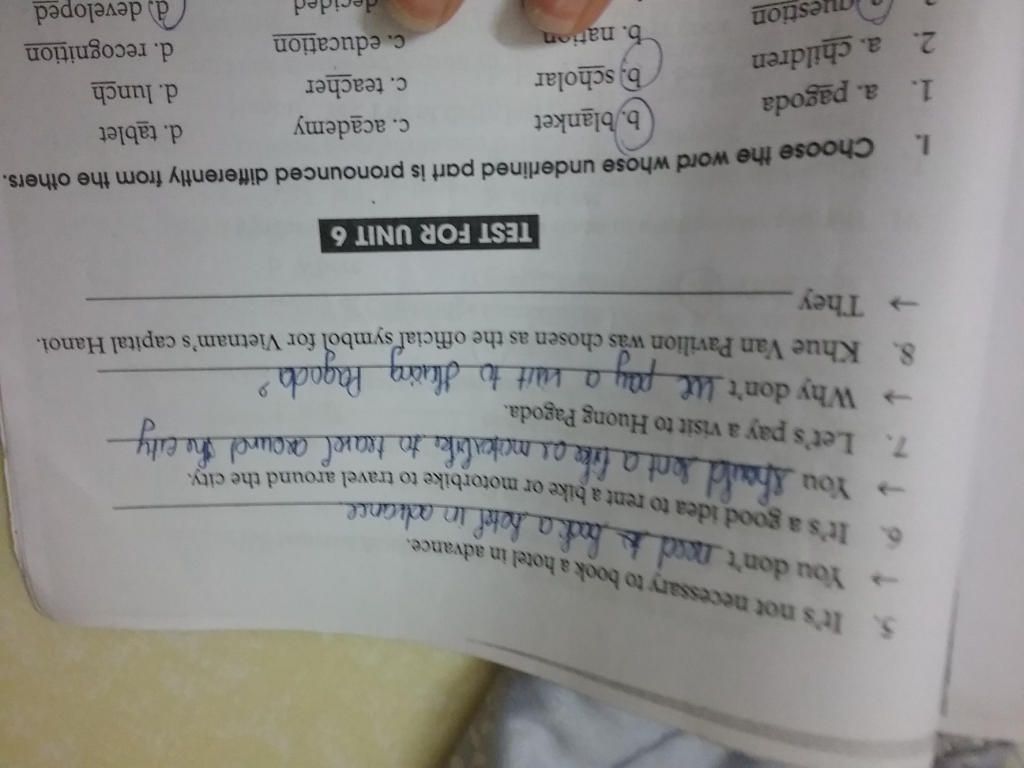 5. It's not necessary to book a hotel in advance.
→ You don't need to book a hotel in advance.
6. It's a good idea to rent a bike or motorbike to travel around the city.
→ You should rent a bike or motorbike to travel around the city
7. Let's pay a visit to Huong Pagoda.
→ Why don't we pay a visit to Huong Pagoda?
8. Khue Van Pavilion was chosen as the official symbol for Vietnam's capital Hanoi.
→ They
TEST FOR UNIT 6
I. Choose the word whose underlined part is pronounced differently from the others.
1. a. pagoda b. blanket c. academy d. tablet
2. a. children b. scholar c. teacher d. lunch
a. question b. nation c. education d. recognition
decided d. developed